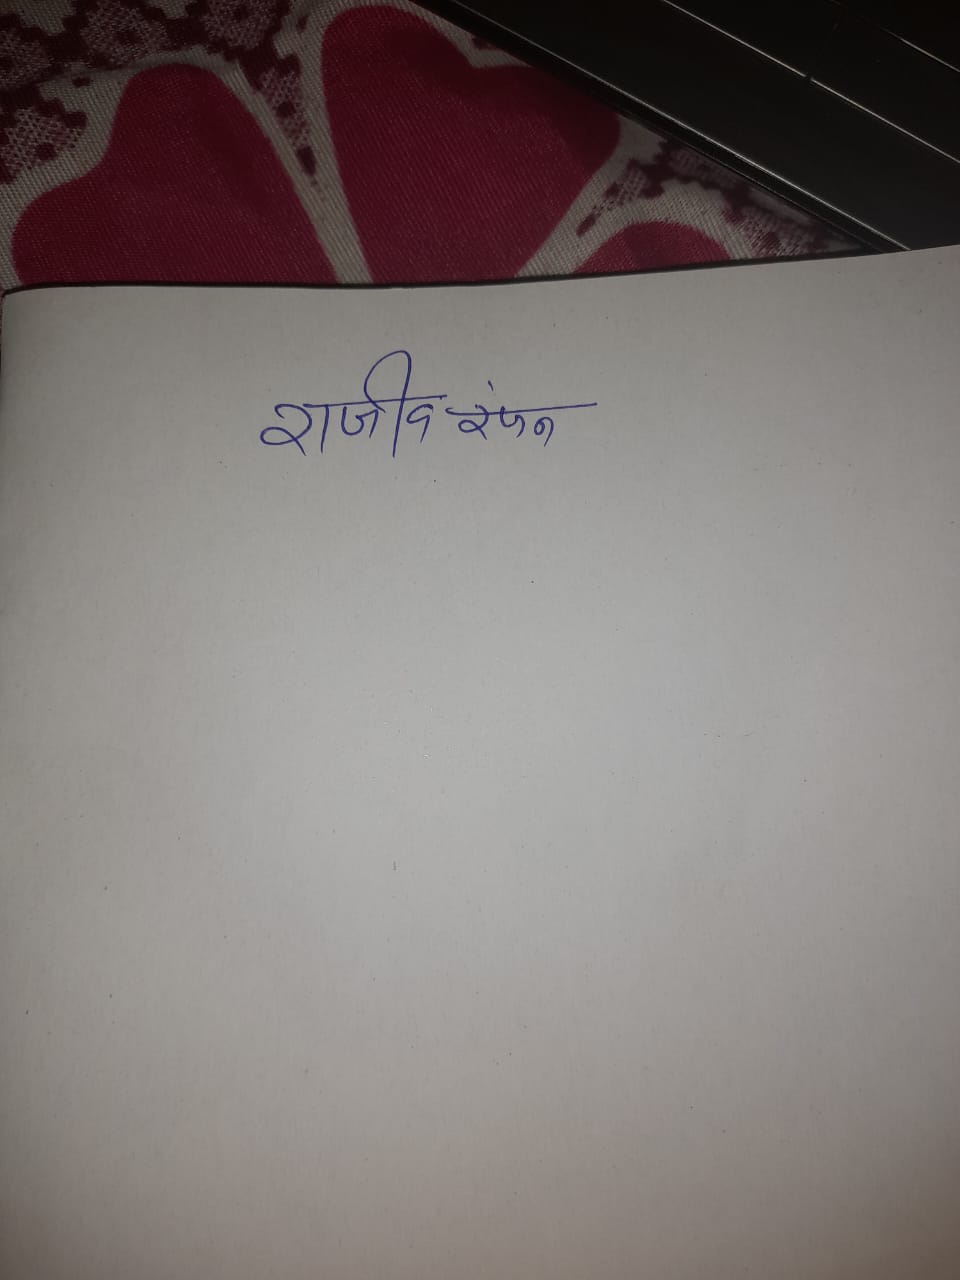 राजीव रंजन